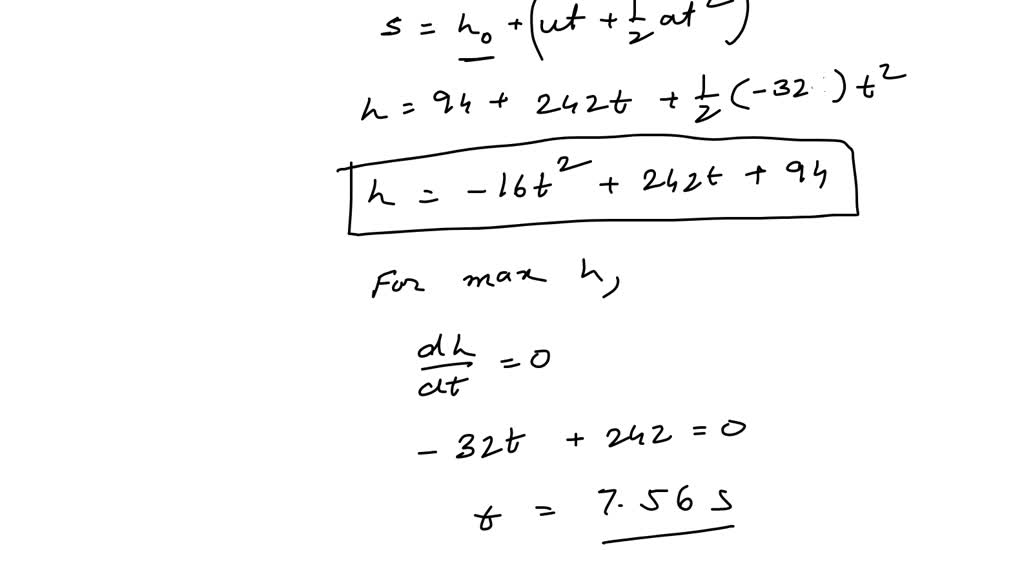 s = h₀ + (ut + ½ at²)
h = 94 + 242t + ½ (-32) t²
h = -16t² + 242t + 94
For max h,
dh/dt = 0
- 32t + 242 = 0
t = 7.56 s